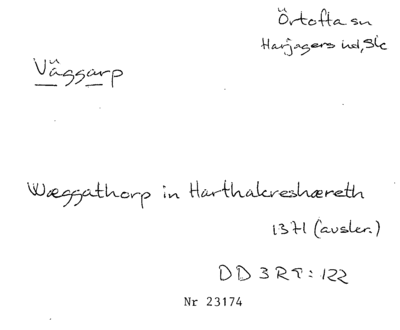 Örtofta sn
Harjagers hd, Sk
Väggarp
Wæggathorp in Harthakreshæreth
1371 (avskr.)
DD 3 R 9 : 122
Nr 23174